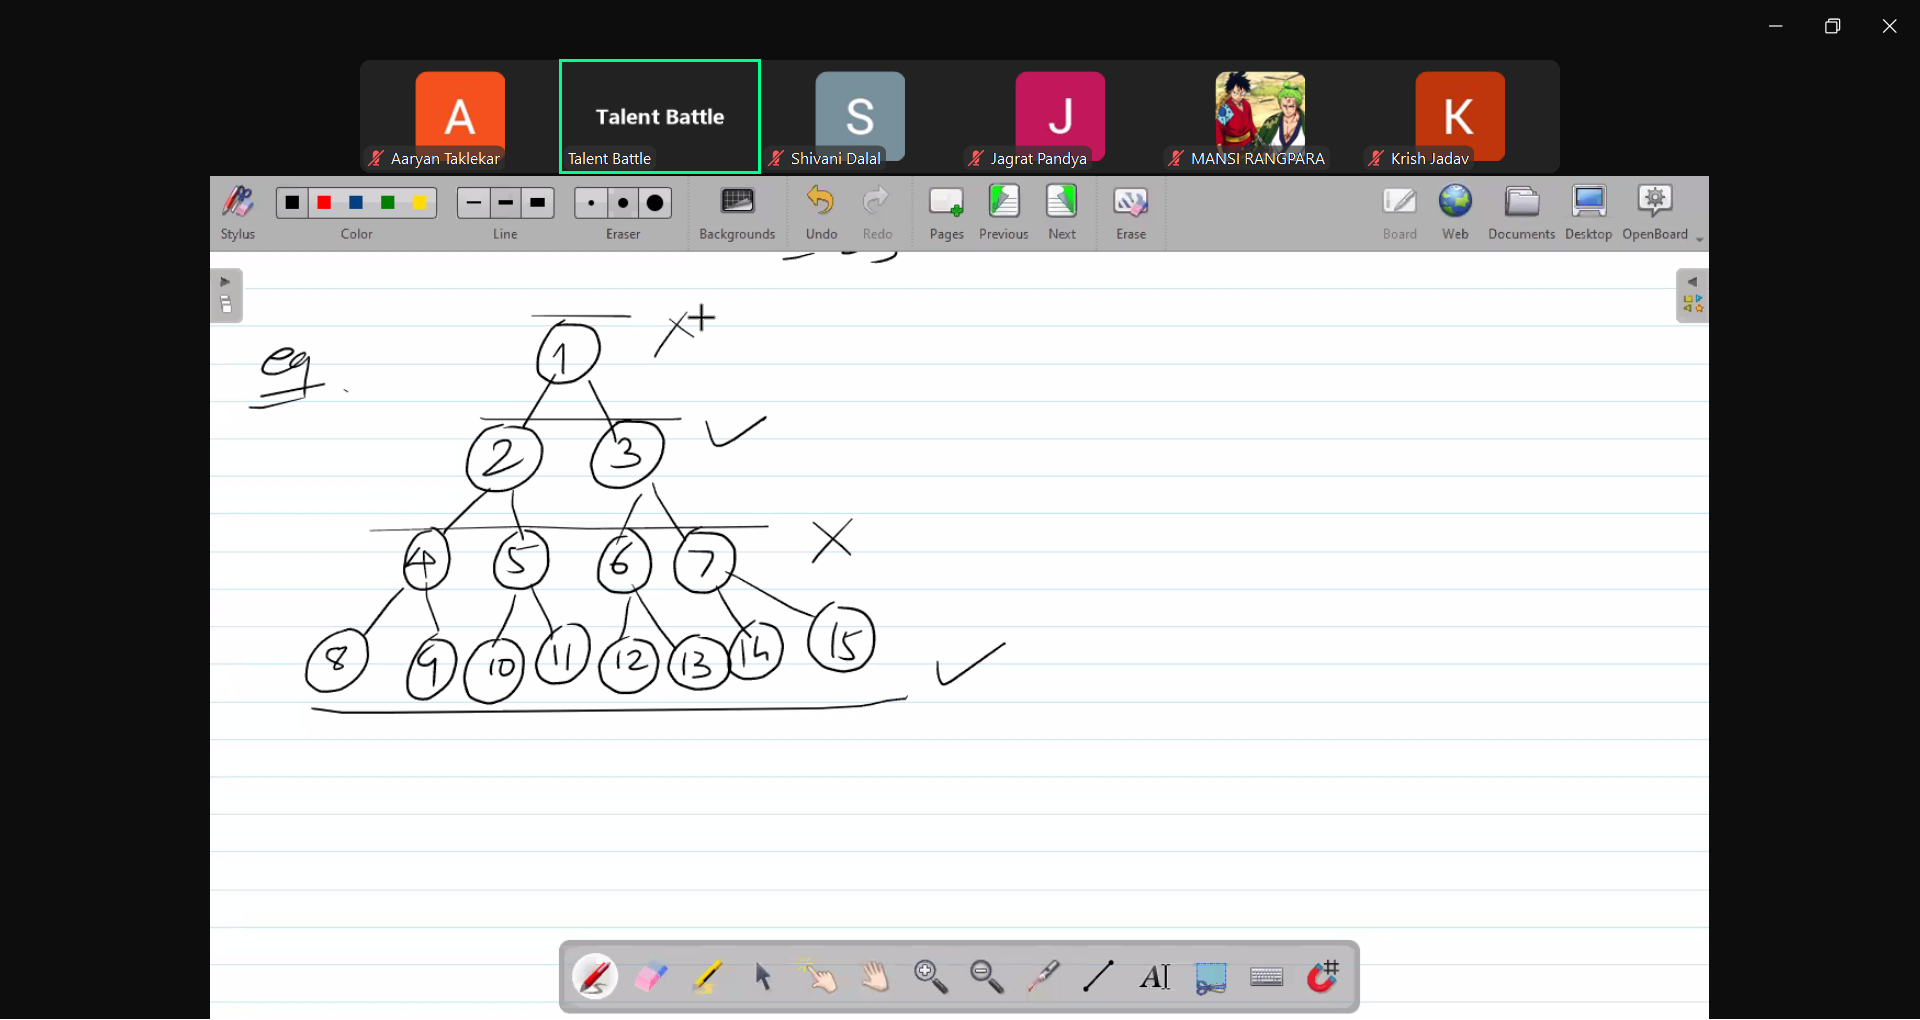 A
Talent Battle
S
J
K
Aaryan Taklekar
Talent Battle
Shivani Dalal
Jagrat Pandya
MANSI RANGPARA
Krish Jadav
Stylus
Color
Line
Eraser
Backgrounds
Undo
Redo
Pages
Previous
Next
Erase
Board
Web
Documents
Desktop
OpenBoard
eg.
1
2
3
4
5
6
7
8
9
10
11
12
13
14
15
AI